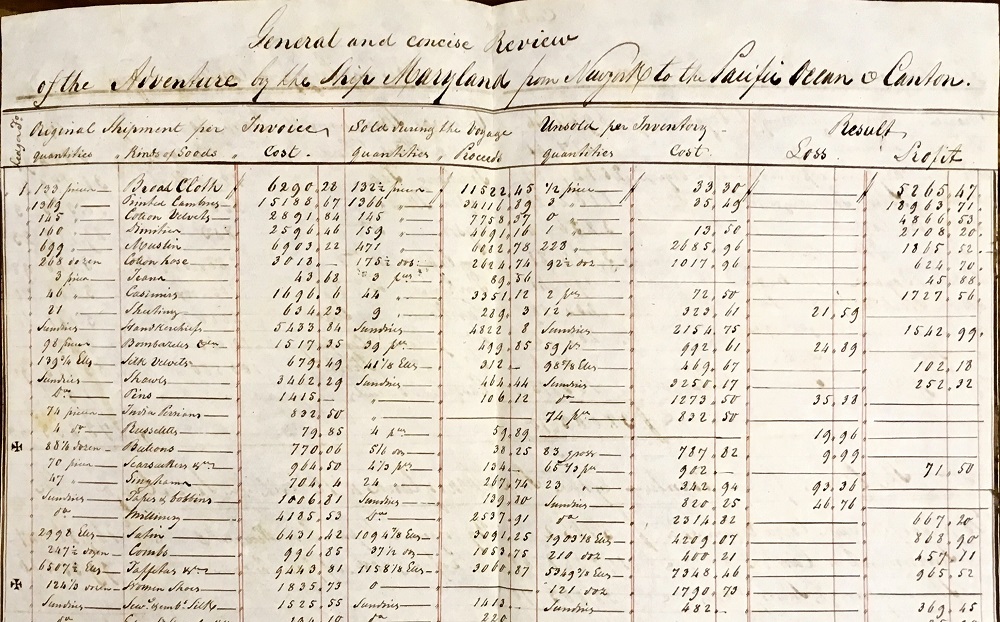 General and concise Review
of the Adventure by the Ship Maryland from Newyork to the Pacific Ocean & Canton.
Original Shipment per Invoice Sold during the Voyage Unsold per Inventory Result
quantities Kinds of Goods Cost. quantities Proceeds quantities Cost. Loss Profit
1 133 pieces Broad Cloth 6290.22 132½ pieces 11522.45 ½ piece 33.30 5265.47
1369 " Printed Cambrics 15188.67 1366 " 34116.89 3 " 35.49 18963.71
145 " Cotton Velvets 2891.84 145 " 7758.37 0 4866.53
160 " Dimities 2596.46 159 " 4691.16 1 " 13.50 2108.20
699 " Muslin 6903.22 471 " 6082.78 228 2685.96 1865.52
268 dozen Cotton hose 3018. 175½ doz 2624.74 92½ doz 1017.96 624.70
3 pieces Jeans 43.68 3 pces 89.56 45.88
46 " Casimirs 1696.6 44 " 3351.12 2 pces 72.50 1727.56
21 " Sheeting 634.23 9 " 289.3 12 " 323.61 21.59
Sundries Handkerchiefs 5433.84 Sundries 4822.8 Sundries 2154.75 1542.99
98 pieces Bombazetts 1517.35 39 pces 499.85 59 pces 992.61 24.89
139¾ Ells Silk Velvets 679.49 41⅛ Ells 312 98⅝ Ells 469.67 102.18
Sundries Shawls 3462.29 Sundries 464.44 Sundries 3250.17 252.32
Do Pins 1415. " 106.12 do 1273.50 35.38
74 pieces India Persians 832.50 " 74 pces 832.50
4 do Russeletts 79.85 4 pces 59.89 19.96
✠ Buttons 770.06 38.25 83 gross 787.82 9.99
70 pieces Searsuckers 964.50 4⅔ pces 134 65⅓ pces 902. 71.50
47 " Ginghams 704.4 24 " 267.74 23 " 342.94 93.36
Sundries Tapes & bobbins 1006.81 Sundries 139.80 Sundries 820.25 46.76
do Millinery 4185.53 Do 2537.91 do 2314.82 667.20
2998 Ells Satin 6431.42 1094⅝ Ells 3091.25 1903⅜ Ells 4209.07 868.90
247½ dozen Combs 996.85 37½ doz 1053.75 210 doz 400.21 457.11
6507½ Ells Taffetas 9443.81 1158⅛ Ells 3060.87 5349⅜ Ells 7348.46 965.52
✠ 124⅔ dozen Women Shoes 1835.73 0 121 doz 1790.73
Sundries Silk 1525.55 Sundries 1413 Sundries 482 369.45